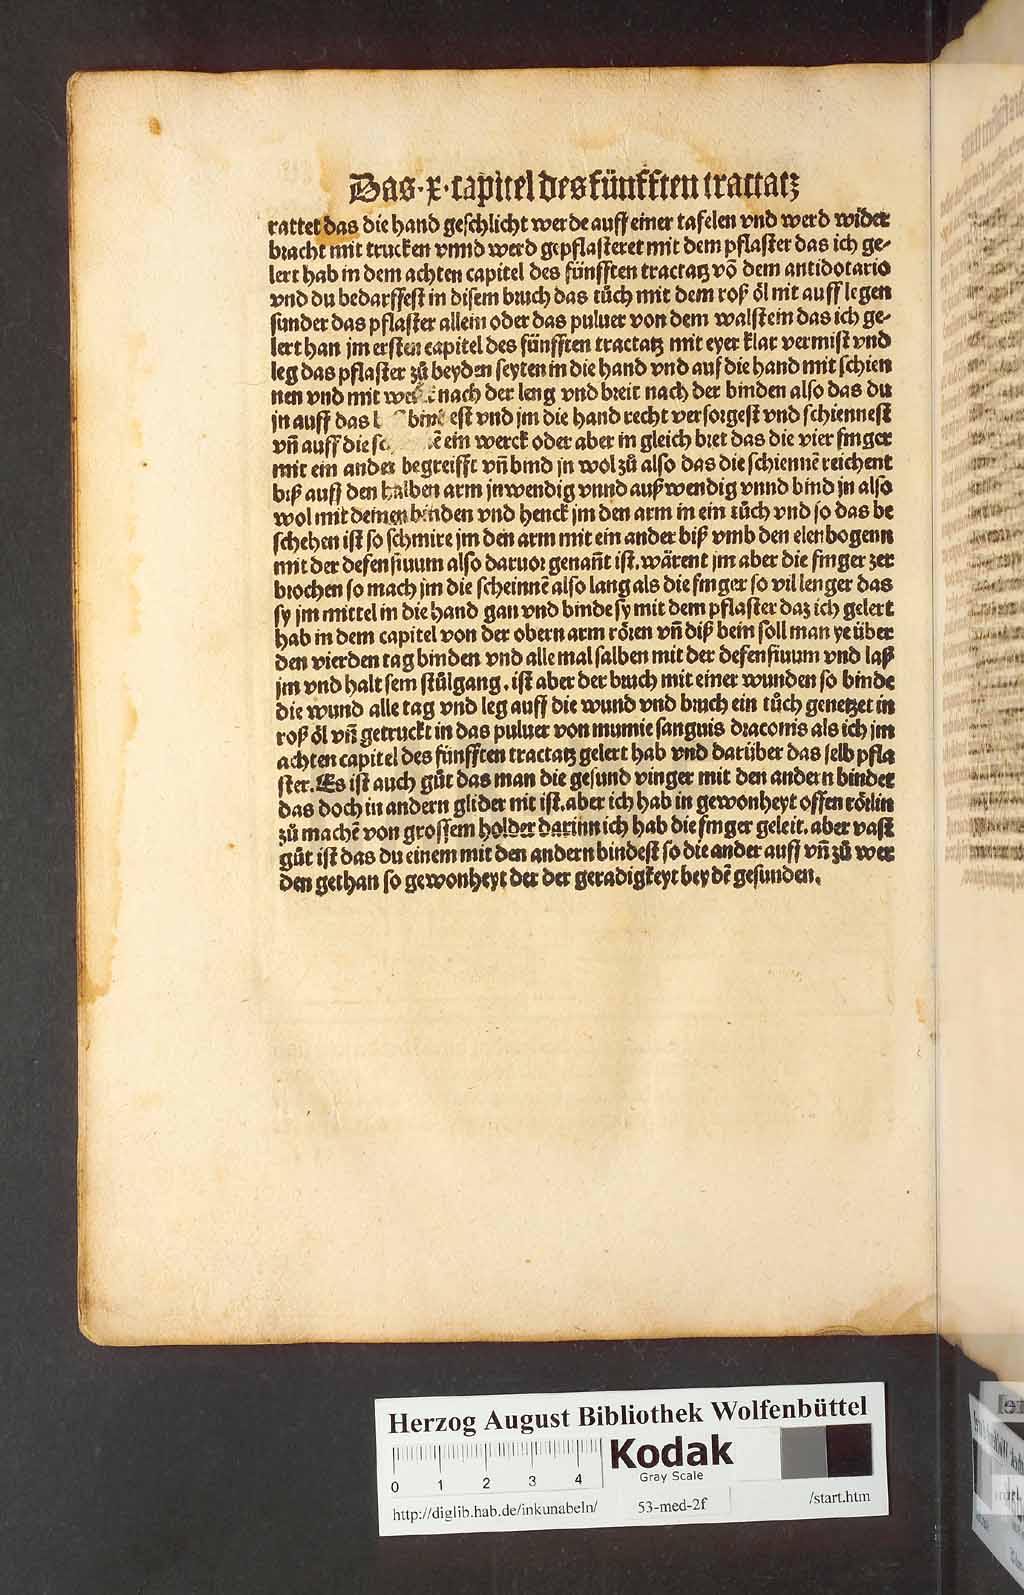 Das·x·capitel des fünfften tractatz
rattet das die hand geschlicht werde auff einer tafelen vnd werd wider
bracht mit trucken vnnd werd gepflasteret mit dem pflaster das ich ge-
lert hab in dem achten capitel des fünfften tractatz vō dem antidotario
vnd du bedarffest in disem bruch das tůch mit dem roß öl nit auff legen
sunder das pflaster allein oder das puluer von dem walstein das ich ge-
lert han jm ersten capitel des fünfften tractatz mit eyer klar vermist vnd
leg das pflaster zů beyden seyten in die hand vnd auf die hand mit schien
nen vnd mit nach der leng vnd breit nach der binden also das du
jn auff das est vnd jm die hand recht versorgest vnd schiennest
vñ auff die ein werck oder aber in gleich bret das die vier finger
mit ein ander begreifft vñ bind jn wol zů also das die schiennē reichent
biß auff den halben arm jnwendig vnnd außwendig vnnd bind jn also
wol mit deinen binden vnd henck jm den arm in ein tůch vnd so das be
schehen ist so schmire jm den arm mit ein ander biß vmb den elenbogenn
mit der defensiuum also daruor genañt ist. wärent jm aber die finger zer
brochen so mach jm die scheinnē also lang als die finger so vil lenger das
sy jm mittel in die hand gan vnd binde sy mit dem pflaster daz ich gelert
hab in dem capitel von der obern arm rören vñ diß bein soll man ye über
den vierden tag binden vnd alle mal salben mit der defensiuum vnd laß
jm vnd halt sein stůlgang. ist aber der bruch mit einer wunden so binde
die wund alle tag vnd leg auff die wund vnd bruch ein tůch genetzet in
roß öl vñ getruckt in das puluer von mumie sanguis draconis als ich jm
achten capitel des fünfften tractatz gelert hab vnd darüber das selb pfla
ster. Es ist auch gůt das man die gesund vinger mit den andern bindet
das doch in andern glider nit ist. aber ich hab in gewonheyt offen rörlin
zů machē von grossem holder darinn ich hab die finger geleit. aber vast
gůt ist das du einem mit den andern bindest so die ander auff vñ zů wer
den gethan so gewonheyt der der geradigkeyt bey dē gesunden.
Herzog August Bibliothek Wolfenbüttel
0 1 2 3 4
Kodak
Gray Scale
http://diglib.hab.de/inkunabeln/ 53-med-2f /start.htm